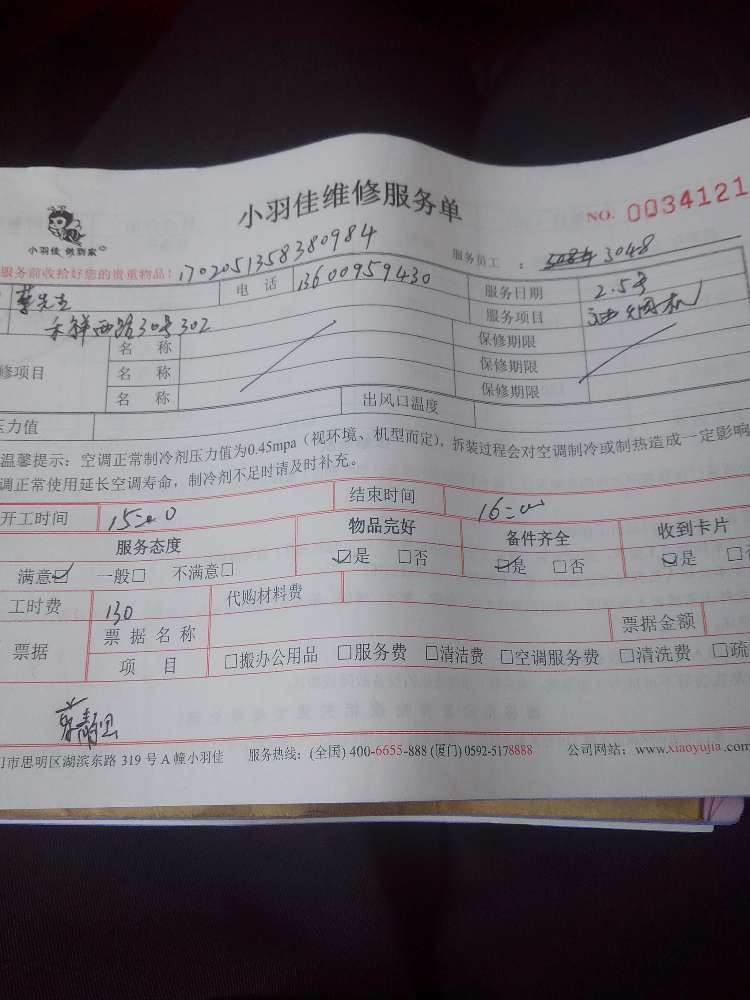 小羽佳维修服务单
NO. 0034121
小羽佳 做到家
服务员工 : 3048
服务前收拾好您的贵重物品! 1702051358380984
先生 电 话 13600959430 服务日期 2.5号
祥西路30号302 服务项目 油烟机
修项目 名 称 保修期限
名 称 保修期限
名 称 保修期限
压力值 出风口温度
温馨提示：空调正常制冷剂压力值为0.45mpa（视环境、机型而定），拆装过程会对空调制冷或制热造成一定影响
调正常使用延长空调寿命，制冷剂不足时请及时补充。
开工时间 结束时间
服务态度 物品完好 备件齐全 收到卡片
满意☑ 一般□ 不满意□ ☑是 □否 ☑是 □否 ☑是 □否
工时费 130 代购材料费
票据 票 据 名 称 票据金额
项 目 □搬办公用品 □服务费 □清洁费 □空调服务费 □清洗费 □疏
门市思明区湖滨东路 319 号 A 幢小羽佳 服务热线：(全国) 400-6655-888 (厦门) 0592-5178888 公司网站：www.xiaoyujia.com